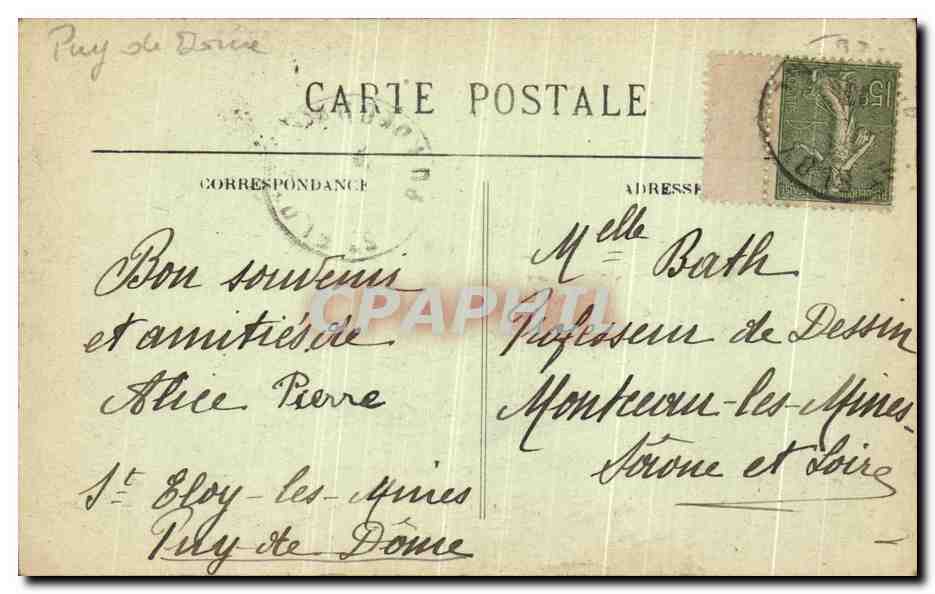 Puy de Dôme
CARTE POSTALE
CORRESPONDANCE
ADRESSE
15c
Bon souvenir
et amitiés de
Alice Pierre
St Eloy-les-Mines
Puy-de Dôme
Melle Bath
Professeur de Dessin
Montceau-les-Mines
Saône et Loire
CPAPHIL